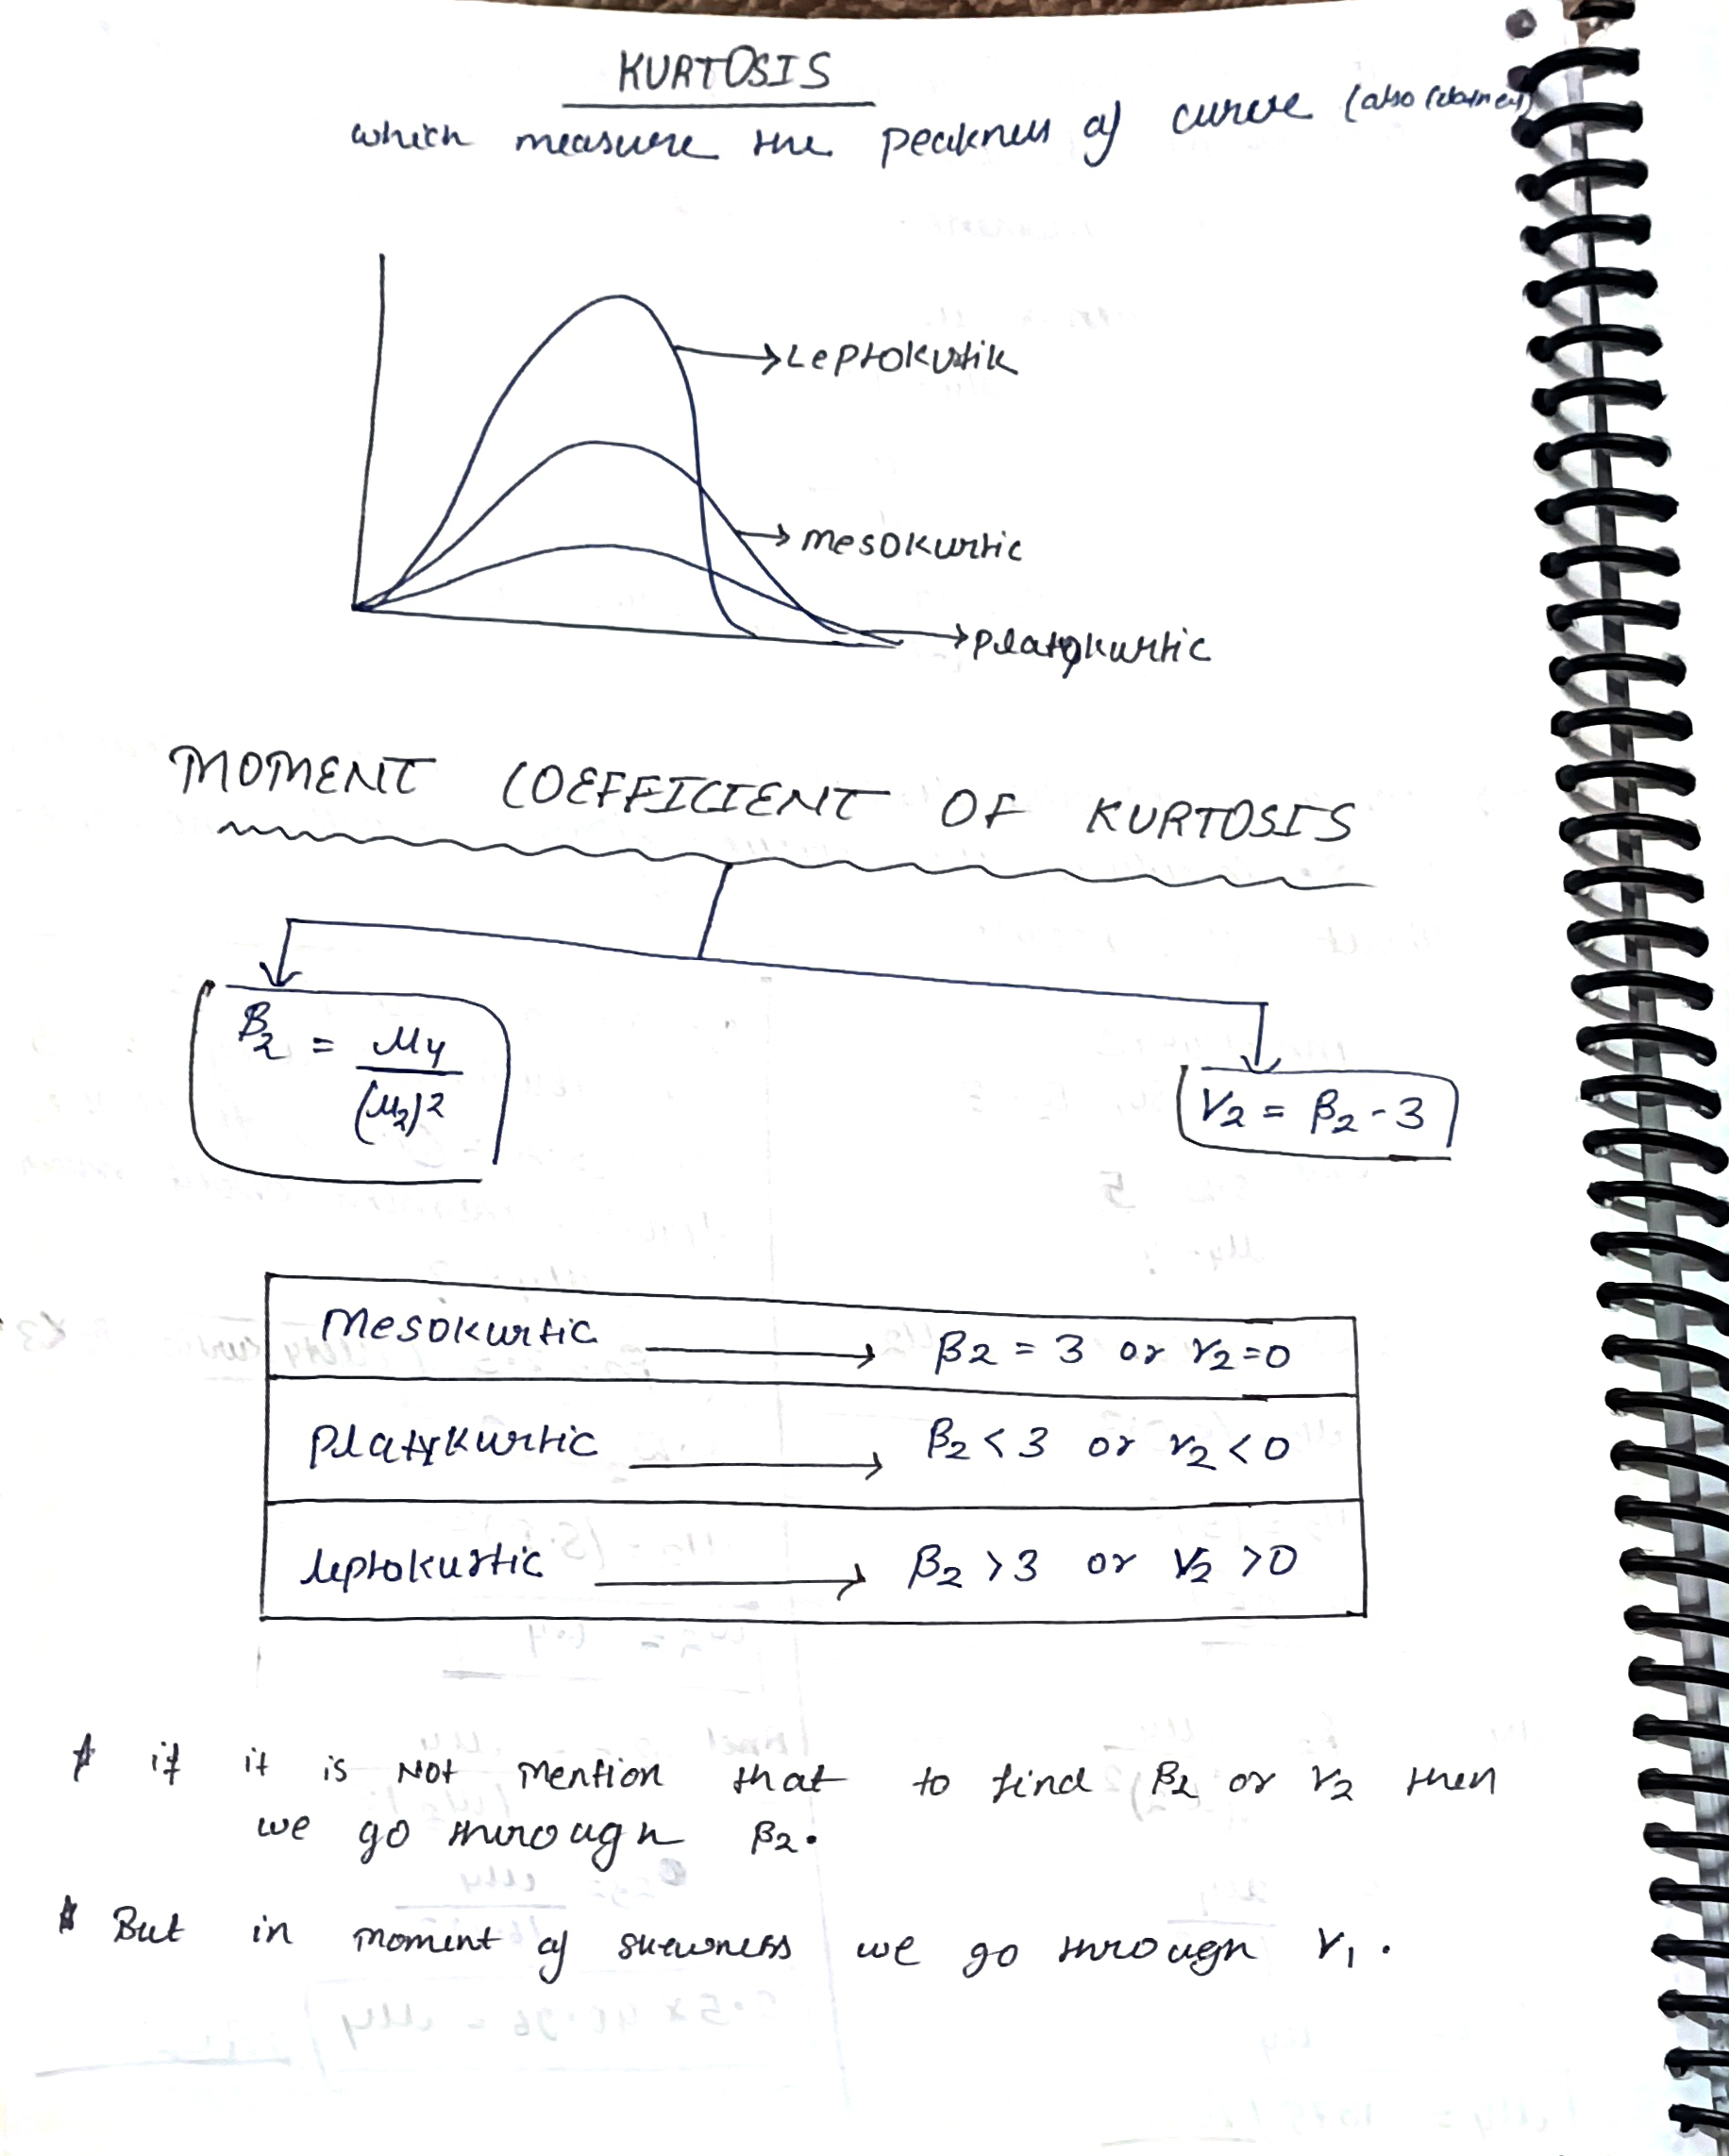 KURTOSIS
which measure the peakness of curve (also
Leptokurtik
mesokurtic
Platykurtic
MOMENT COEFFICIENT OF KURTOSIS
β₂ = μ₄ / (μ₂)²
γ₂ = β₂ - 3
Mesokurtic → β₂ = 3 or γ₂ = 0
Platykurtic → β₂ < 3 or γ₂ < 0
leptokurtic → β₂ > 3 or γ₂ > 0
* if it is NOT mention that to find β₂ or γ₂ then
we go through β₂.
* But in moment of skewness we go through γ₁.